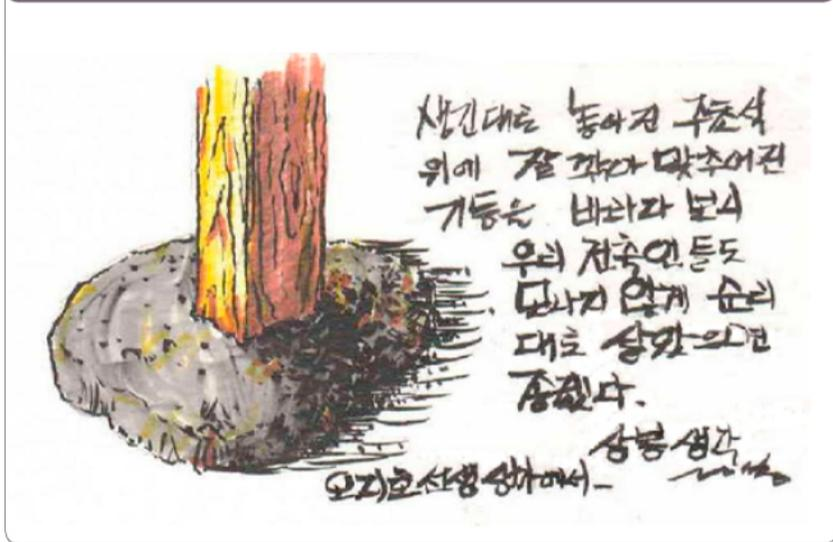 생긴대로 놓아진 주초석
위에 잘 깎아 맞추어진
기둥을 바라다 보니
우리 건축인들도
모나지 않게 순리
대로 살았으면
좋겠다.
상봉 생각
오지호 선생 생가에서_